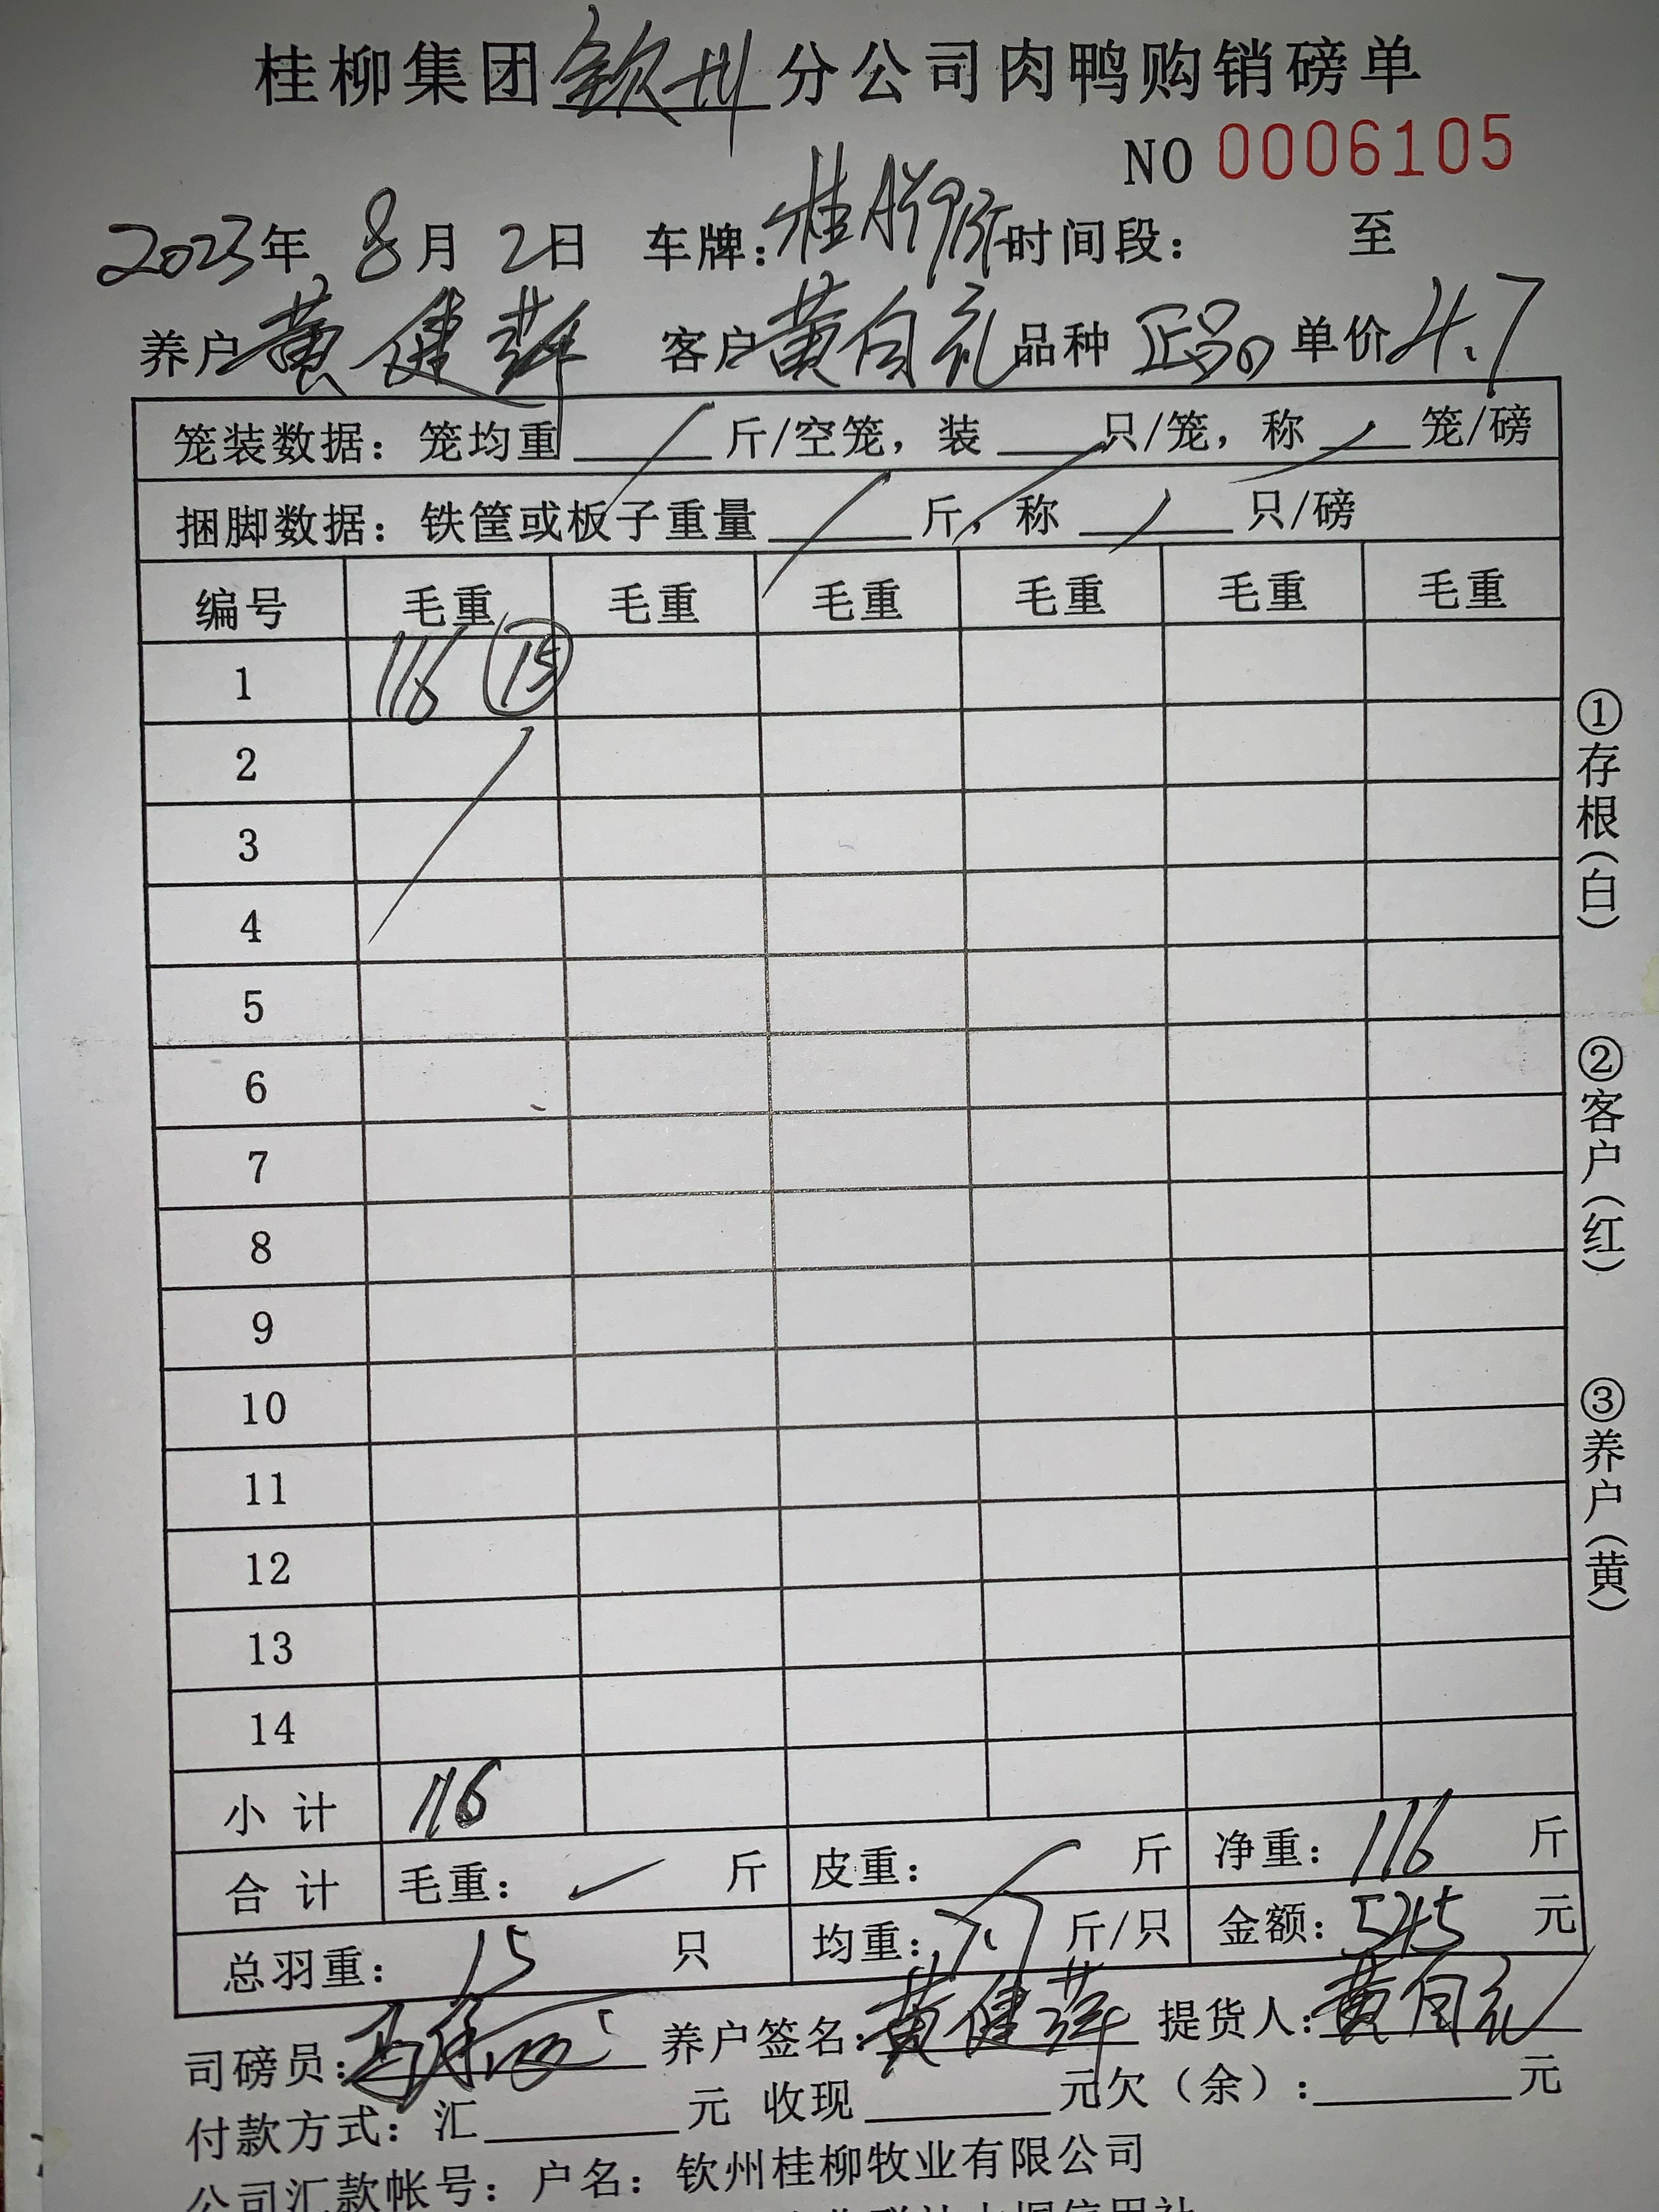 桂柳集团钦州分公司肉鸭购销磅单
NO 0006105
2023年 8月 2日 车牌: 桂 时间段: 至
养户 黄健萍 客户 黄自礼 品种 正品 单价 4.7
笼装数据: 笼均重 斤/空笼, 装 只/笼, 称 笼/磅
捆脚数据: 铁筐或板子重量 斤, 称 只/磅
编号 毛重 毛重 毛重 毛重 毛重 毛重
1 116 15
2
3
4
5
6
7
8
9
10
11
12
13
14
小计 116
合计 毛重: 斤 皮重: 斤 净重: 116 斤
总羽重: 15 只 均重: 7.7 斤/只 金额: 545 元
司磅员: 养户签名: 黄健萍 提货人: 黄自礼
付款方式: 汇 元 收现 元 欠（余）: 元
公司汇款帐号: 户名: 钦州桂柳牧业有限公司
①存根（白）
②客户（红）
③养户（黄）